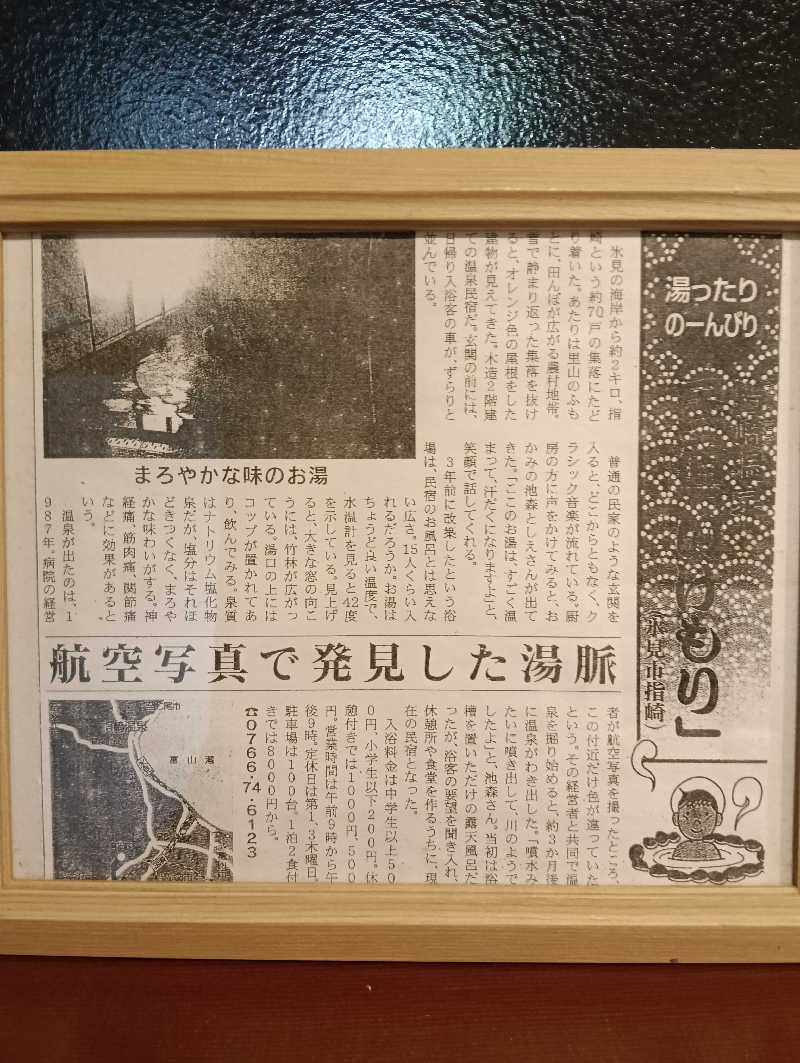 湯ったり
のーんびり
けもり」
(氷見市指崎)
氷見の海岸から約2キロ、指
崎という約70戸の集落にたど
り着いた。あたりは里山のふも
とに、田んぼが広がる農村地帯。
雪で静まり返った集落を抜け
ると、オレンジ色の屋根をした
建物が見えてきた。木造2階建
ての温泉民宿だ。玄関の前には、
日帰り入浴客の車が、ずらりと
並んでいる。
普通の民家のような玄関を
入ると、どこからともなく、ク
ラシック音楽が流れている。厨
房の方に声をかけてみると、お
かみの池森としえさんが出て
きた。「ここのお湯は、すごく温
まって、汗だくになりますよ」と、
笑顔で話してくれる。
3年前に改築したという浴
場は、民宿のお風呂とは思えな
い広さ。15人くらい入
れるだろうか。お湯は
ちょうど良い温度で、
水温計を見ると42度
を示している。見上げ
ると、大きな窓の向こ
うには、竹林が広がっ
ている。湯口の上には
コップが置かれてあ
り、飲んでみる。泉質
はナトリウム塩化物
泉だが、塩分はそれほ
どきつくなく、まろや
かな味わいがする。神
経痛、筋肉痛、関節痛
などに効果があると
いう。
温泉が出たのは、1
987年。病院の経営
まろやかな味のお湯
航空写真で発見した湯脈
者が航空写真を撮ったところ、
この付近だけ色が違っていた
という。その経営者と共同で温
泉を掘り始めると、約3か月後
に温泉がわき出した。「噴水み
たいに噴き出して、川のようで
したよ」と、池森さん。当初は浴
槽を置いただけの露天風呂だ
ったが、浴客の要望を聞き入れ、
休憩所や食堂を作るうちに、現
在の民宿となった。
入浴料金は中学生以上50
0円、小学生以下200円。休
憩付きでは1000円、500
円。営業時間は午前9時から午
後9時。定休日は第1、3木曜日。
駐車場は100台。1泊2食付
きでは8000円から。
☎0766・74・6123
富山湾